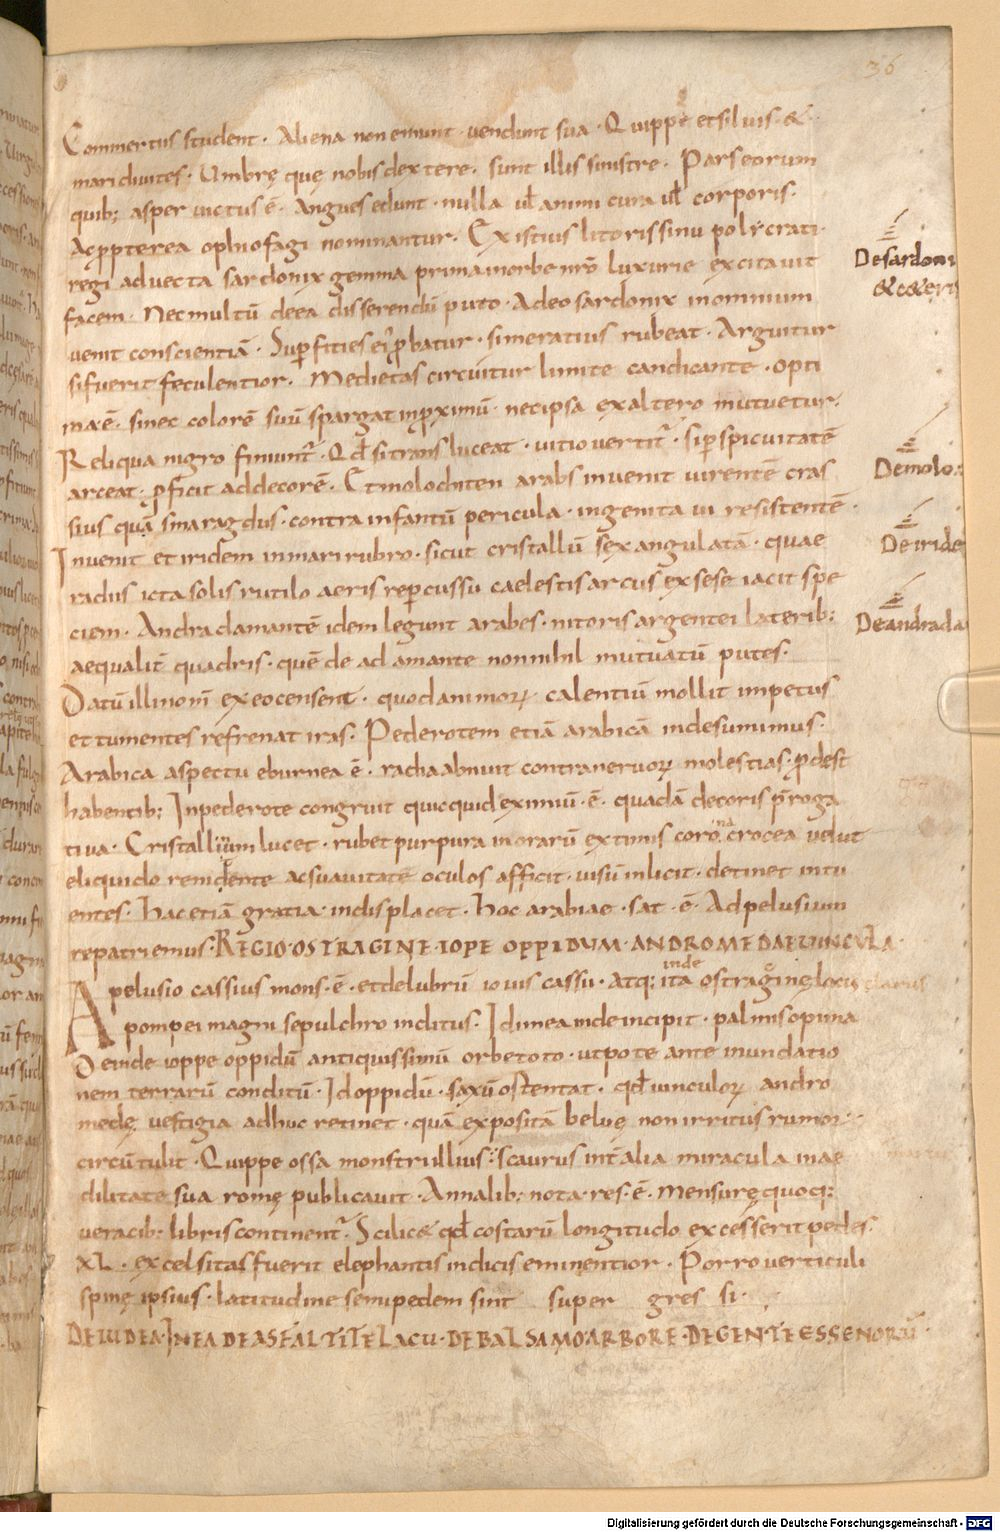 36
Commertus student · Aliena non emunt · uendunt sua · Quippe et siluis · &
mari diuites · Umbrę quę nobis dextere · sunt illis sinistre · Pars eorum
quib; asper uictus ē · Angues edunt · nulla uł animi cura uł corporis ·
Ac ꝓpterea ophiofagi nominantur · Ex istius litoris sinu policrati
regi aduecta sardonix gemma prima in orbe nr̄o luxurie excitauit
facem · Nec multū deea disserendū puto · Adeo sardonix in omnium
uenit conscientiā · Suꝑfities eiꝰ ꝓbatur · si meratius rubeat · Arguitur
si fuerit feculentior · Medietas circuitur limite candicante · opti
ma ē · si nec colorē suū spargat in ꝓximū · nec ipsa ex altero mutuetur ·
Reliqua nigro finiunt᷑ · Qđ si transluceat · uitio uertit᷑ · si ꝑspicuitatē
arceat · ꝓficit ad decorē · Et molochiten arabs inuenit uirentē cras
sius quā smaragdus · contra infantū pericula · ingenita ui resistentē ·
Inuenit et iridem in mari rubro · sicut cristallū sexangulatā · quae
radiis icta solis rutilo aeris reꝑcussu caelestis arcus ex sese iacit spe
ciem · Andradamantē idem legunt arabes · nitoris argentei laterib;
aequalit̄ quadris · quē de adamante nonnihil mutuatū putes ·
Datū illi nom̄ ex eo censent · quod animoꝝ calentiū mollit impetus
et tumentes refrenat iras · Pederotem etiā arabicā inde sumimus ·
Arabica aspectu eburnea ē · radia abnuit contra neruoꝝ molestias · ꝓdest
habentib; In pederote congruit quicquid eximiū · ē · quadā decoris p̄roga
tiua · Cristallium lucet · rubet purpura in orarū extimis corona crocea uelut
e liquido renidente ac suauitate oculos afficit · uisū inlicit · detinet intu
entes · Hac etiā gratia indis placet · Hoc arabiae · sat · ē · Ad pelusium
repatriemus · REGIO · OSTRAGINE · IOPE OPPIDUM · ANDROMEDAE UINCULA ·
A pelusio cassius mons · ē · et delubrū iouis cassii · atq; ita inde ostragine locus clarus
pompei magni sepulchro inclitus · Idumea inde incipit · palmis opima
Deinde ioppe oppidū antiquissimū orbe toto · utpote ante inundatio
nem terrarū conditū · Id oppidū · saxū ostentat · qđ uinculoꝝ andro
medę uestigia adhuc retinet · quā expositā beluę non irritus rumor
circūtulit · Quippe ossa monstri illius · scaurus int̄ alia miracula in ae
dilitate sua romę publicauit · Annalib; nota · res · ē · mensurę quoq;
ueracib; libris continent᷑ · Scilic& qđ costarū longitudo excesserit pedes ·
XL · excelsitas fuerit elephantis indicis eminentior · Porro uerticuli
spinę ipsius · latitudine semipedem sint super gres si ·
DE IUDEA · IN EA DE ASFALTITE LACU · DE BALSAMO ARBORE · DE GENTE ESSENORŪ ·
De sardoni
& ceteris
De molo:
De iride
De andrada